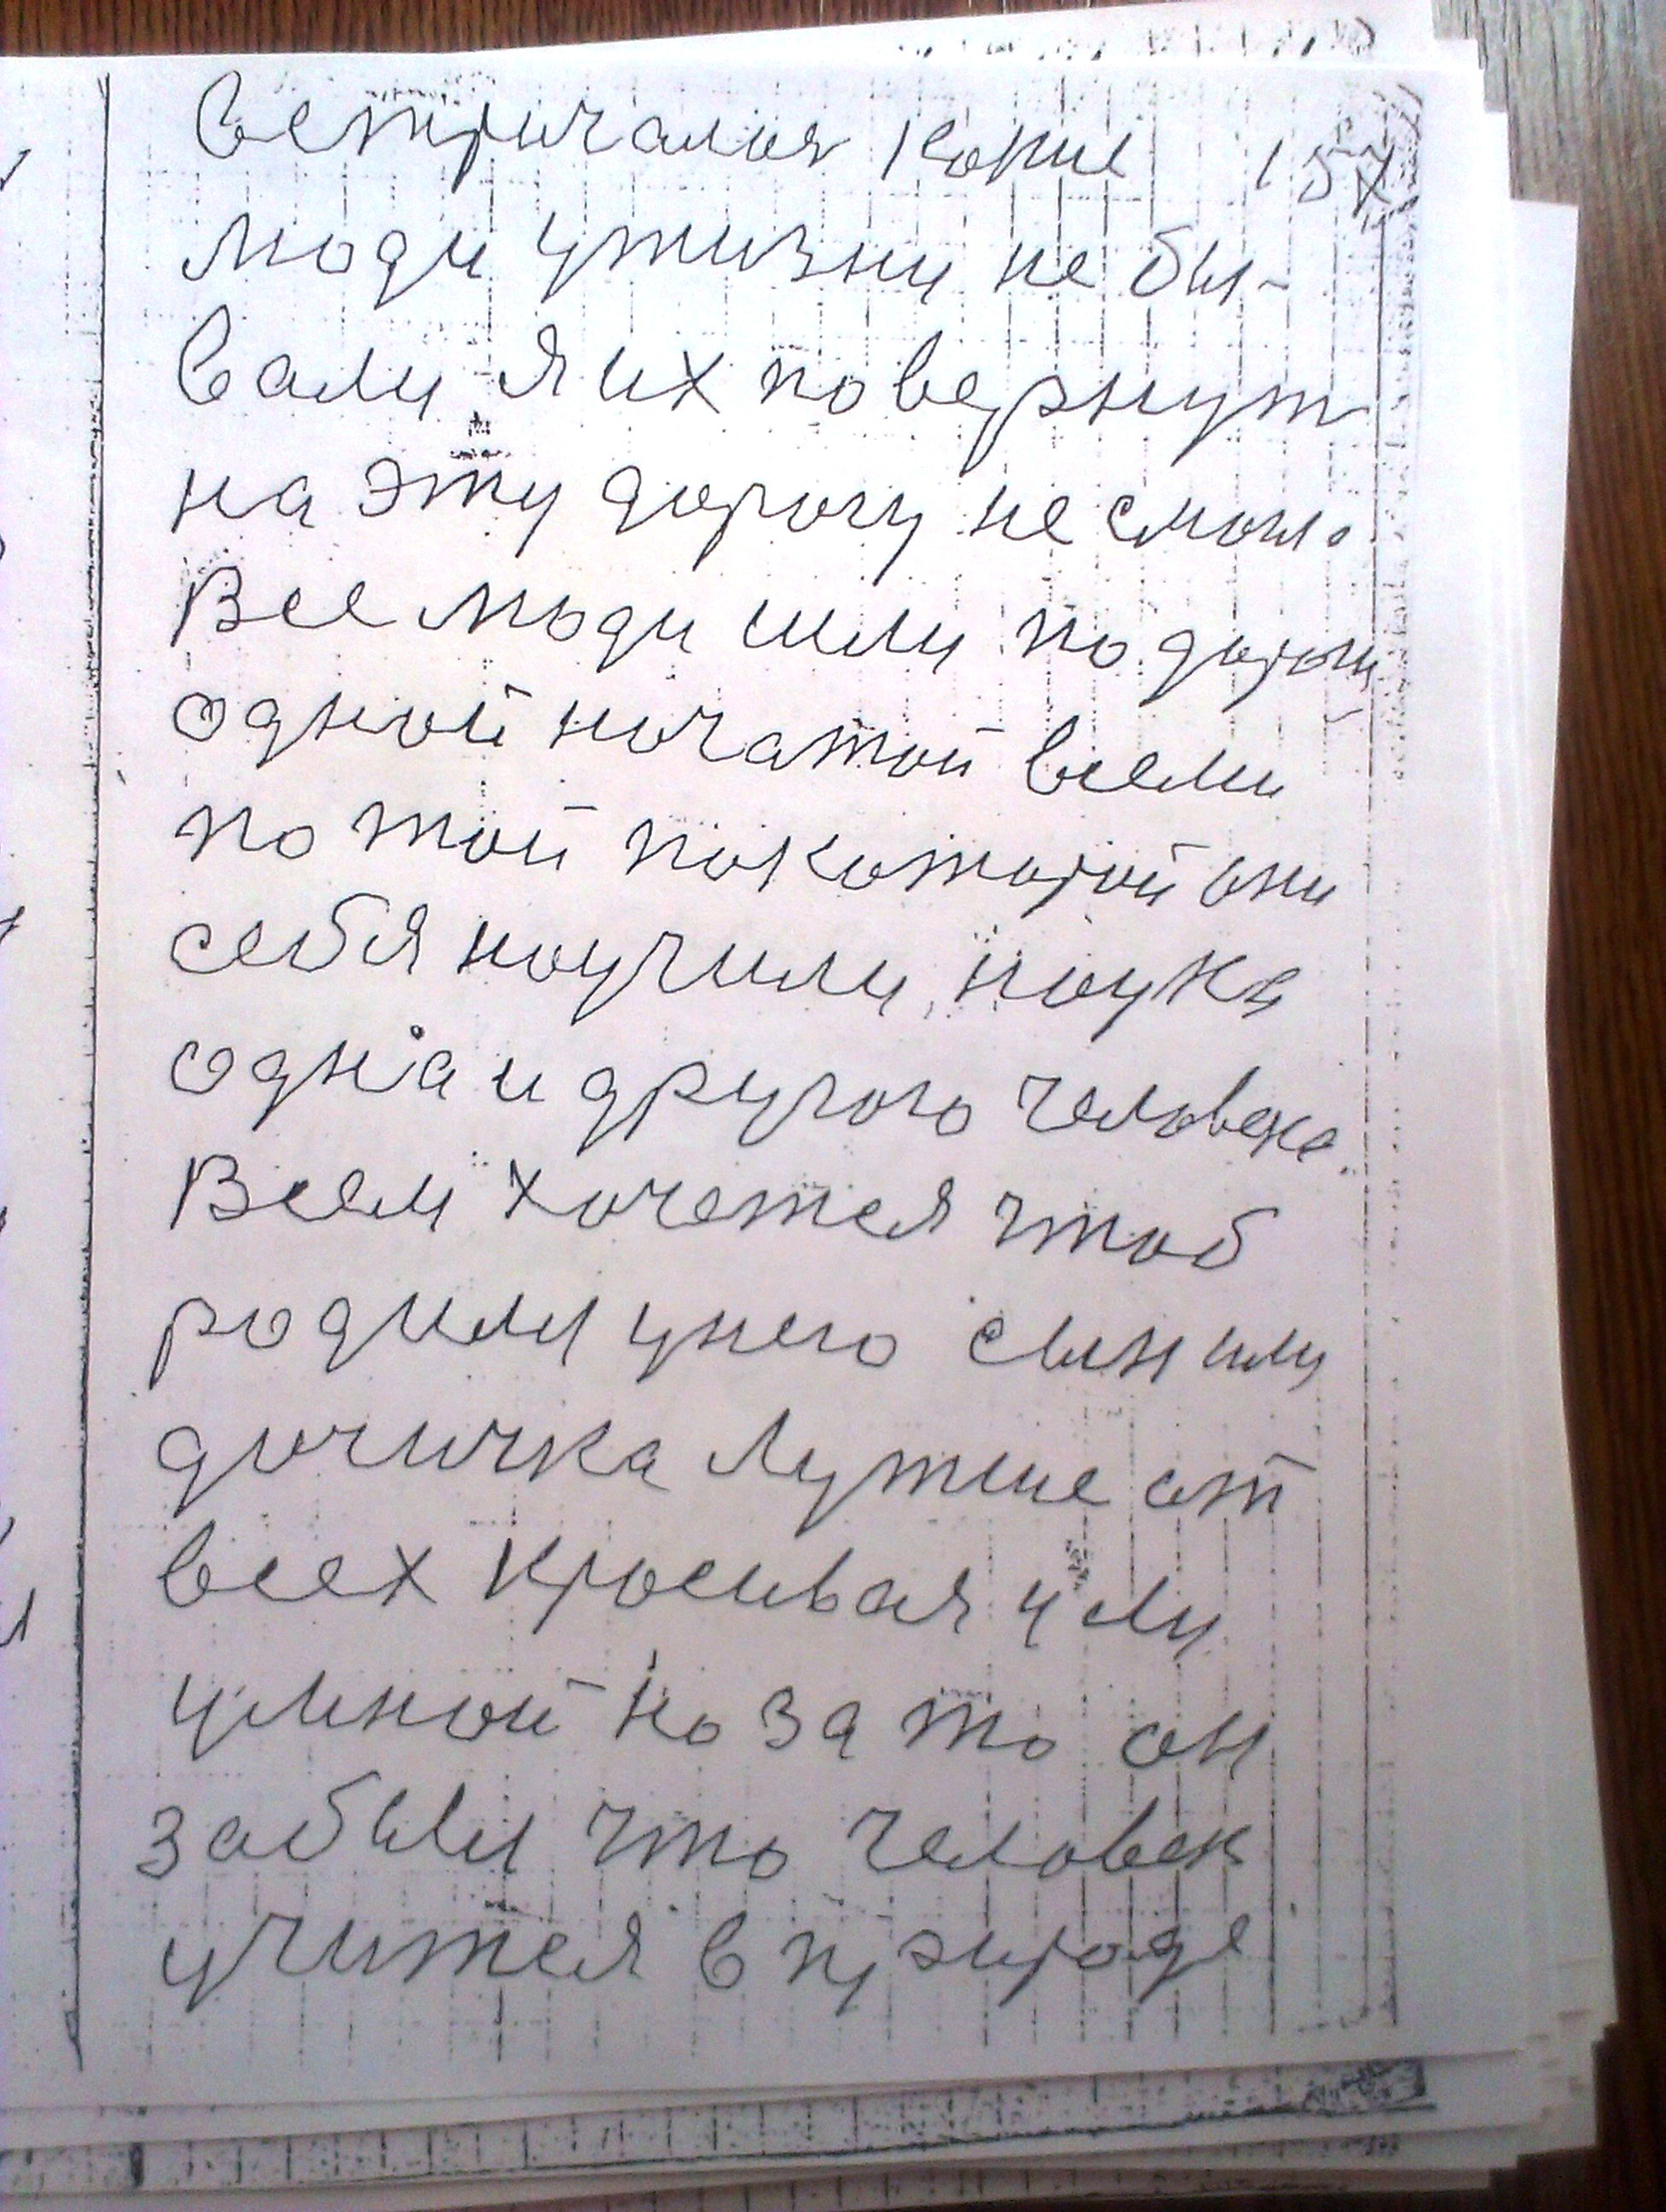 встричался какие 157
люди ужизни не бы-
вали я их повернут
на эту дорогу не смог.
Все люди шли по дороги
одной начатой всеми
по той покоторой они
себя научили, науки
одна и другого человека.
Всем хочется чтоб
родили унего сын или
дочичка лутше от
всех красивая или
умной но за то он
забыли что человек
учится в природе